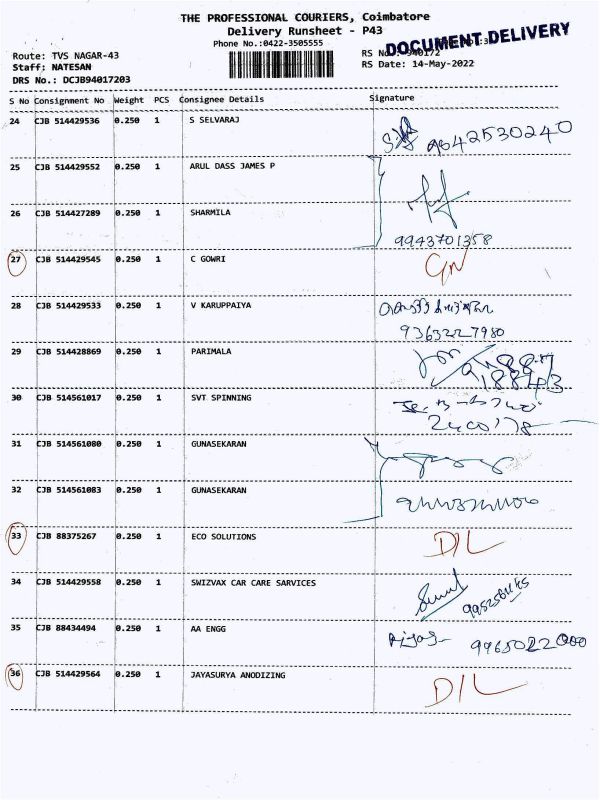 THE PROFESSIONAL COURIERS, Coimbatore
Delivery Runsheet - P43
Phone No.:0422-3505555
DOCUMENT DELIVERY
Route: TVS NAGAR-43
RS No.: 940172
Staff: NATESAN
RS Date: 14-May-2022
DRS No.: DCJB94017203
S No Consignment No Weight PCS Consignee Details Signature
24 CJB 514429536 0.250 1 S SELVARAJ 9842530240
25 CJB 514429552 0.250 1 ARUL DASS JAMES P
26 CJB 514427289 0.250 1 SHARMILA
9943701358
27 CJB 514429545 0.250 1 C GOWRI
28 CJB 514429533 0.250 1 V KARUPPAIYA
9363227980
29 CJB 514428869 0.250 1 PARIMALA
30 CJB 514561017 0.250 1 SVT SPINNING
31 CJB 514561080 0.250 1 GUNASEKARAN
32 CJB 514561083 0.250 1 GUNASEKARAN
33 CJB 88375267 0.250 1 ECO SOLUTIONS D/L
34 CJB 514429558 0.250 1 SWIZVAX CAR CARE SARVICES
35 CJB 88434494 0.250 1 AA ENGG 9965022000
36 CJB 514429564 0.250 1 JAYASURYA ANODIZING D/L